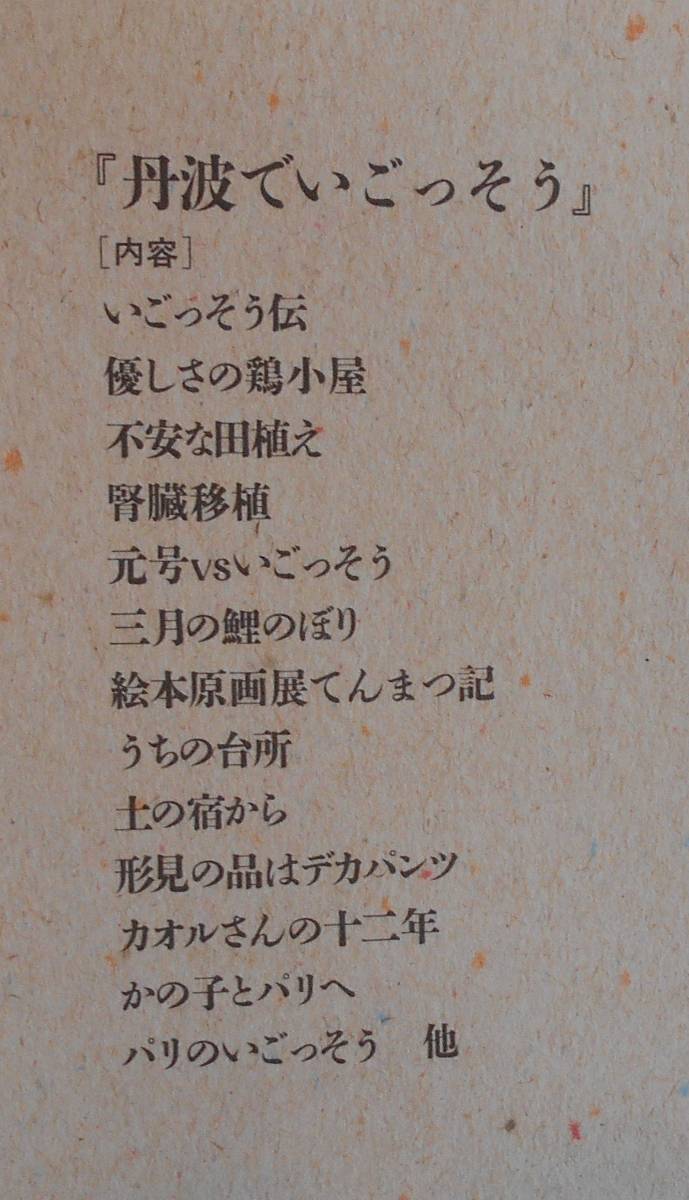 『丹波でいごっそう』
［内容］
いごっそう伝
優しさの鶏小屋
不安な田植え
腎臓移植
元号vsいごっそう
三月の鯉のぼり
絵本原画展てんまつ記
うちの台所
土の宿から
形見の品はデカパンツ
カオルさんの十二年
かの子とパリへ
パリのいごっそう　他